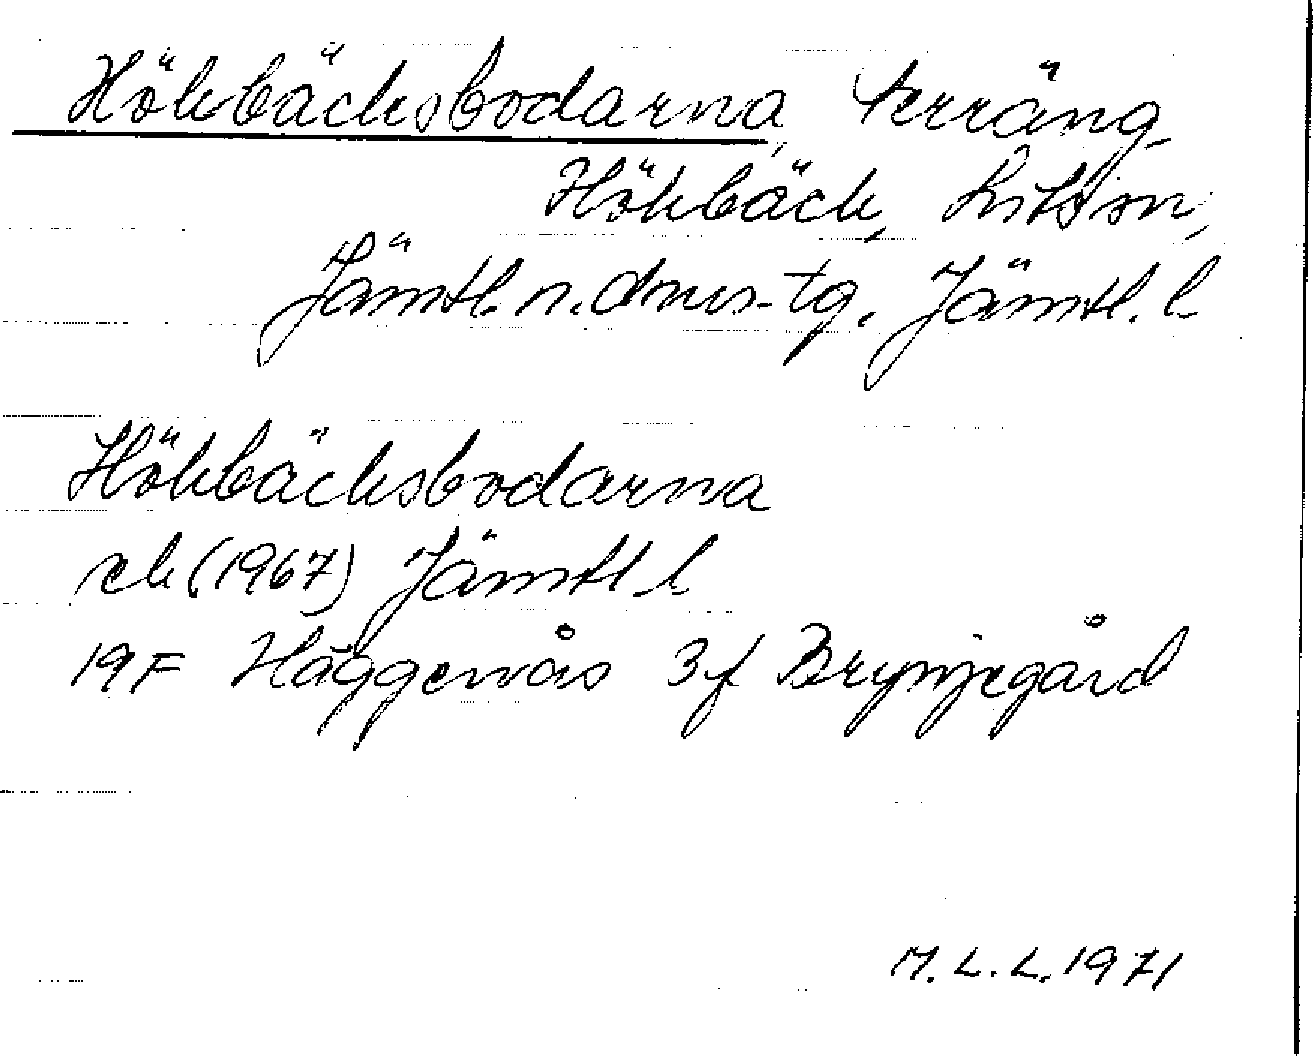 Hökbäcksbodarna, terräng
Hökbäck, Lits sn,
Jämtl. n. dms-tg, Jämtl. l
Hökbäcksbodarna
ek (1967) Jämtl l
19F Häggenås 3f Brynjegård
M.L.L. 1971